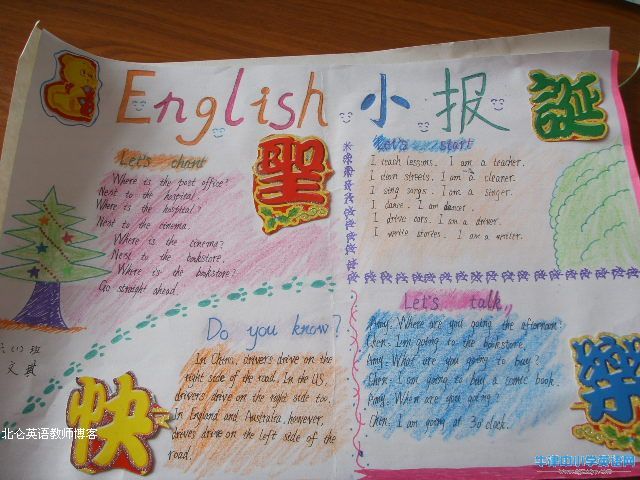 English 小报
聖
誕
快
樂
Let's chant
Where is the post office?
Next to the hospital.
Where is the hospital?
Next to the cinema.
Where is the cinema?
Next to the bookstore.
Where is the bookstore?
Go straight ahead.
Let's start
I teach lessons. I am a teacher.
I clean streets. I am a cleaner.
I sing songs. I am a singer.
I dance. I am dancer.
I drive cars. I am a driver.
I write stories. I am a writer.
Do you know?
In China, drivers drive on the
right side of the road. In the US,
drivers drive on the right side too.
In England and Australia, however,
drives drive on the left side of the
road.
Let's talk
Amy: Where are you going the afternoon?
Chen: I'm going to the bookstore.
Amy: What are you going to buy?
Chen: I am going to buy a comic book.
Amy: When are you going?
Chen: I am going at 3 o'clock.
六(1)班
文
北仑英语教师博客
牛津中小学英语网